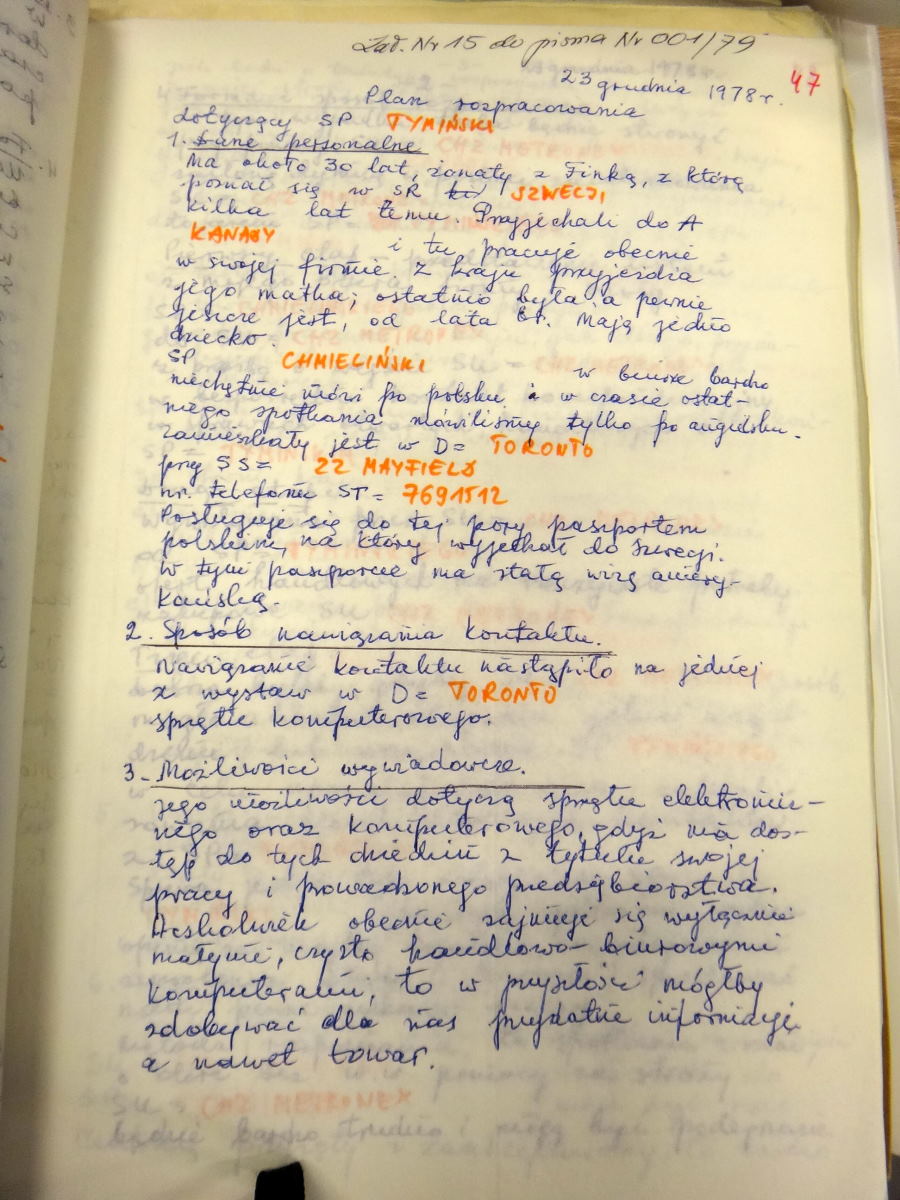 Zał. Nr 15 do pisma Nr 001/79
23 grudnia 1978r.
47
Plan rozpracowania
dotyczący SP TYMIŃSKI
1. Dane personalne
Ma około 30 lat, żonaty z Finką, z którą
poznał się w SR SZWECJI
kilka lat temu. Przyjechali do A
KANADY i tu pracuje obecnie
w swojej firmie. Z kraju przyjeżdża
jego matka; ostatnio była, a pewnie
jeszcze jest, od lata br. Mają jedno
dziecko.
SP CHMIELIŃSKI w biurze bardzo
niechętnie mówi po polsku i w czasie ostat-
niego spotkania mówiliśmy tylko po angielsku.
zamieszkały jest w D= TORONTO
przy SS= 22 MAYFIELD
nr. telefonu ST= 7691512
Posługuje się do tej pory paszportem
polskim, na który wyjechał do Szwecji.
W tym paszporcie ma stałą wizę amery-
kańską.
2. Sposób nawiązania kontaktu.
Nawiązanie kontaktu nastąpiło na jednej
z wystaw w D= TORONTO
sprzętu komputerowego.
3. Możliwości wywiadowcze.
Jego możliwości dotyczą sprzętu elektronicz-
nego oraz komputerowego, gdyż ma dos-
tęp do tych dziedzin z tytułu swojej
pracy i prowadzonego przedsiębiorstwa.
Aczkolwiek obecnie zajmuje się wyłącznie
małymi, czysto handlowo-biurowymi
komputerami, to w przyszłości mógłby
zdobywać dla nas przydatne informacje,
a nawet towar.